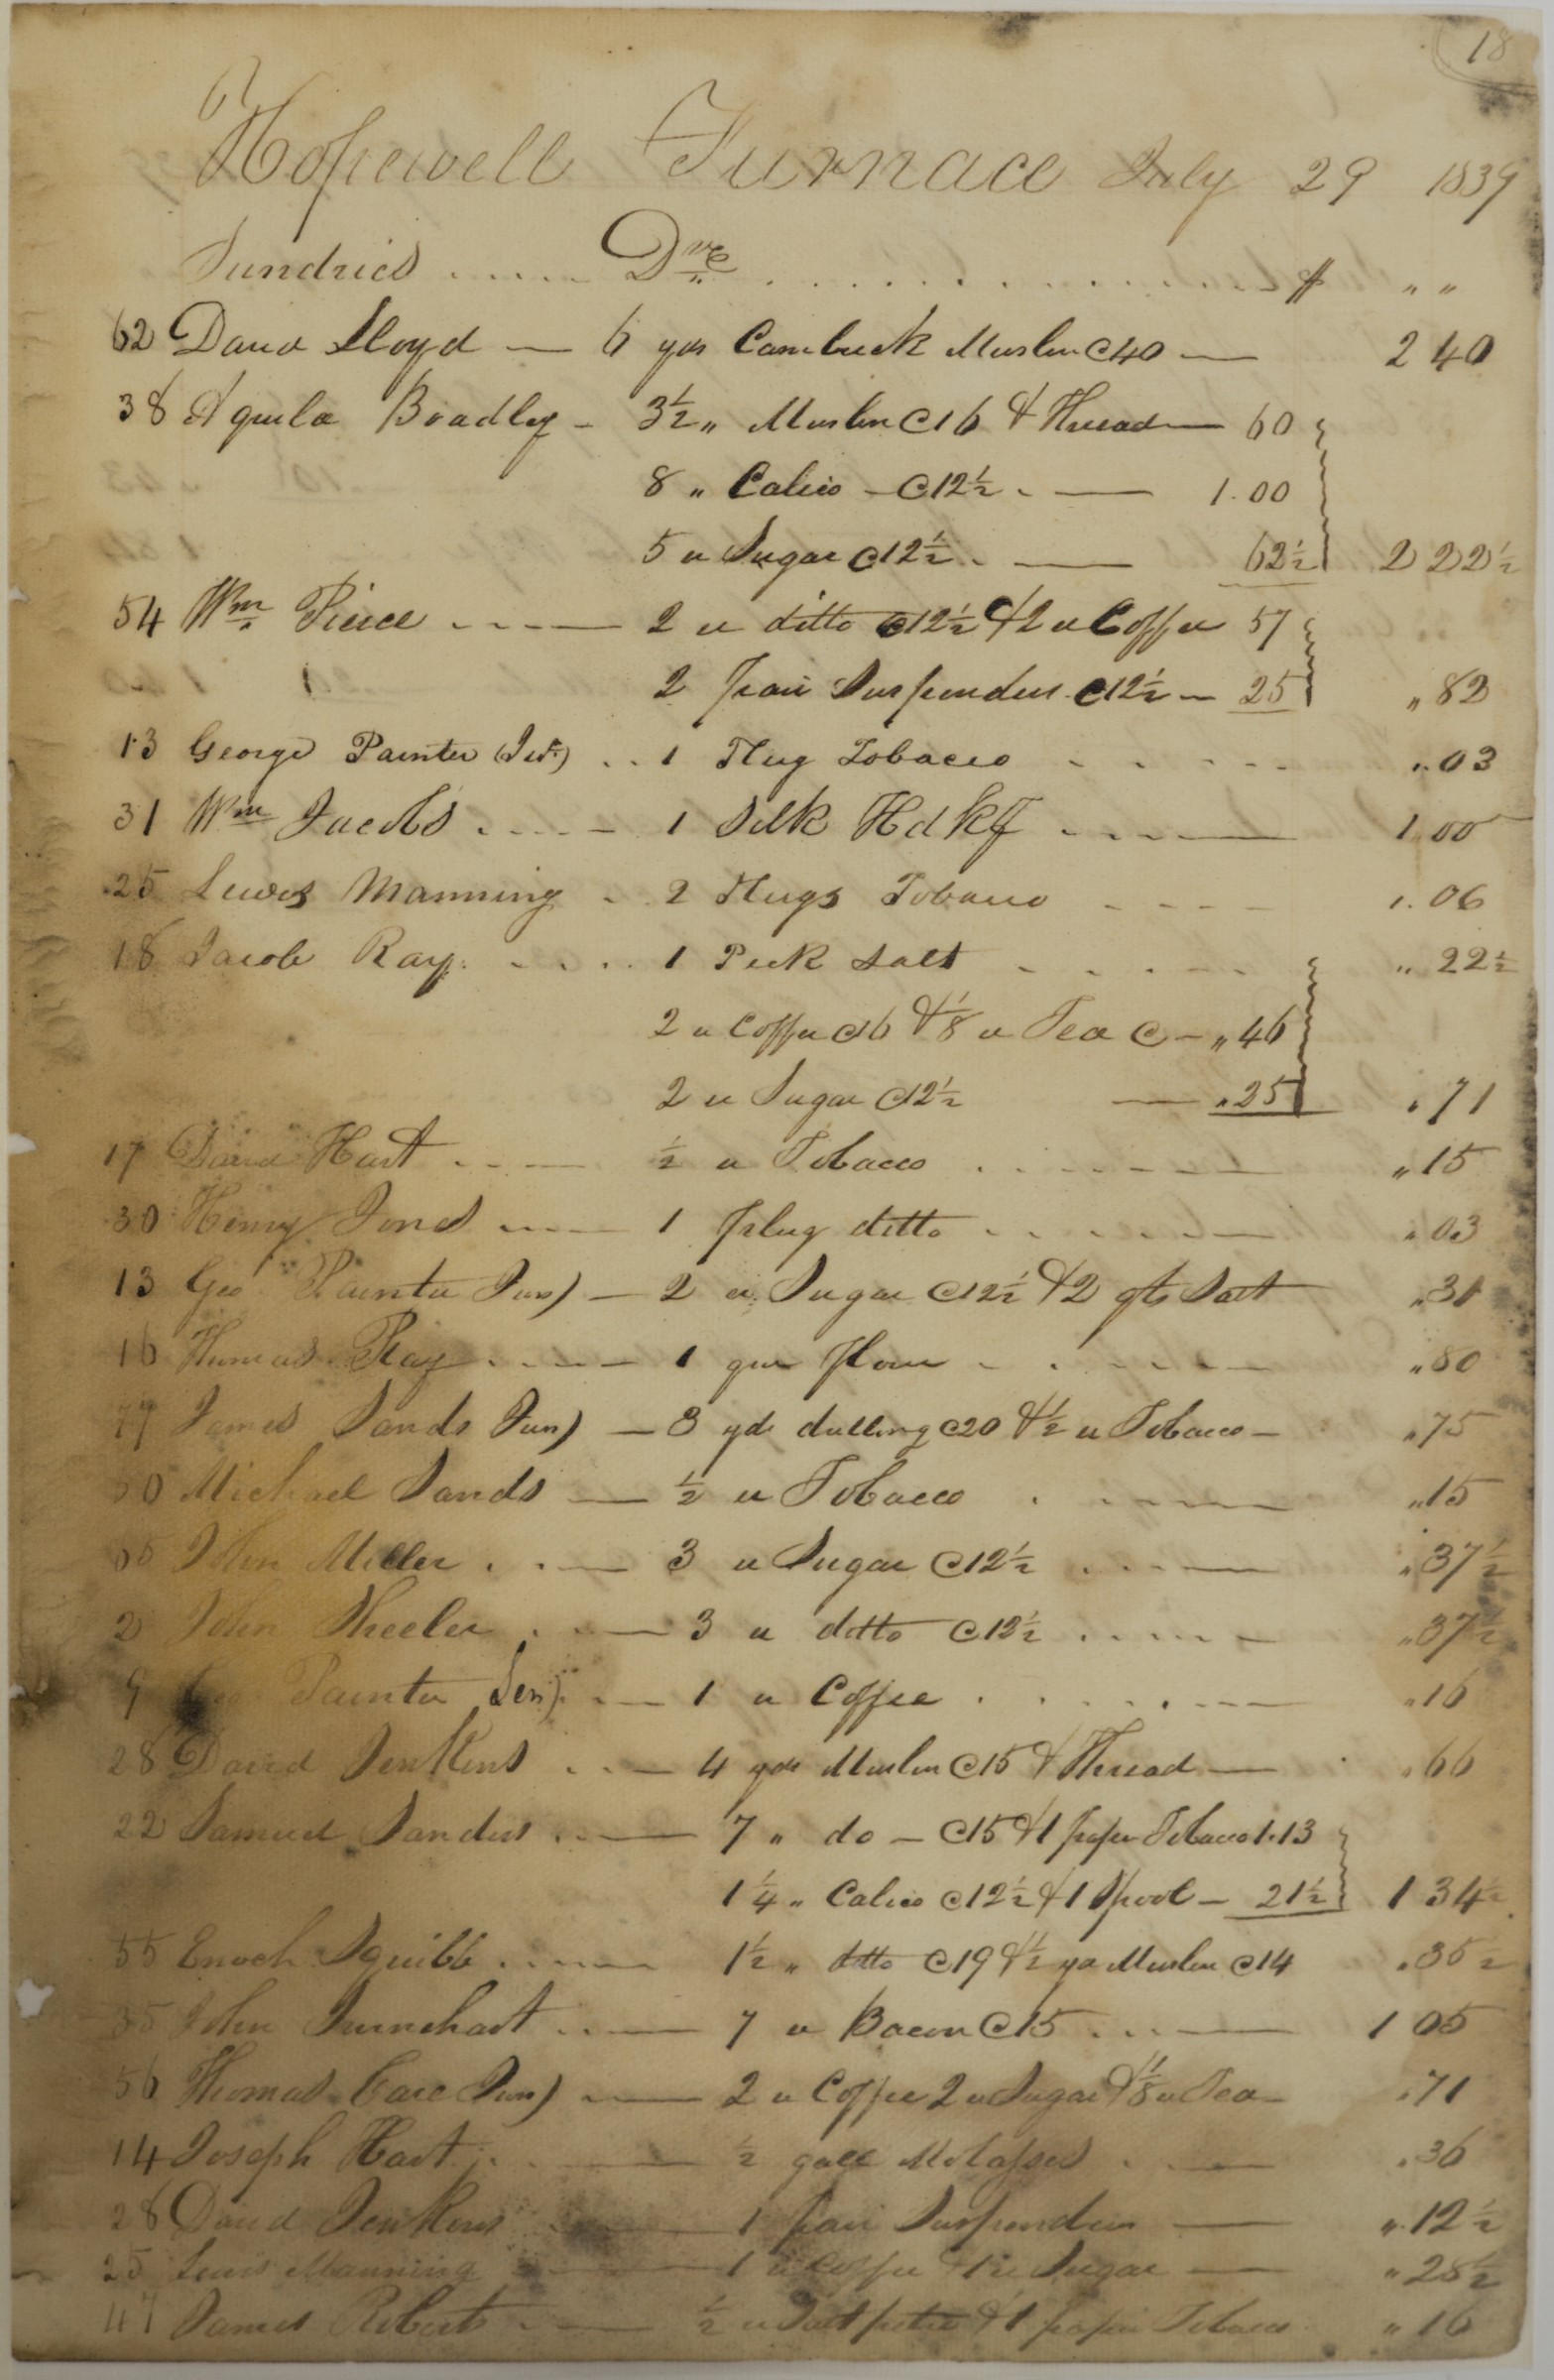 18
Hopewell Furnace July 29 1839
Sundries ..... Drs ............ $ " "
62 David Lloyd — 6 yds Cambrick Muslin @40 — 2 40
38 Aquila Bradley - 3½ " Muslin @16 & Thread — 60
8 " Calico - @12½ . — 1.00
5 " Sugar @12½ . — 62½ 2 22½
54 Wm Pierce ..... — 2 " ditto @12½ & 2 " Coffee 57
2 pair Suspenders @12½ — 25 " 82
13 George Painter (Jur) .. 1 Plug Tobacco - - - - - " 03
31 Wm Jacobs ..... 1 Silk Hdkf ..... — 1 00
25 Lewis Manning - 2 Plugs Tobacco - - - - " 06
18 Jacob Ray. .... 1 Peck Salt - - - - " 22½
2 " Coffee @16 & ⅛ " Tea @ - " 46
2 " Sugar @12½ — " 25 " 71
17 David Hart ..... ½ " Tobacco ..... — " 15
30 Henry Jones ..... 1 plug ditto ..... — " 03
13 Geo Painter Jun) — 2 " Sugar @12½ & 2 qts Salt " 31
16 Thomas Ray ..... — 1 qur Flour ..... — " 80
77 James Sands Jun) — 3 yds drilling @20 & ½ " Tobacco — " 75
Michael Sands — ½ " Tobacco ..... — " 15
John Miller . . — 3 " Sugar @12½ ..... — " 37½
2 John Sheeler . . — 3 " ditto @12½ ..... — " 37½
9 Geo Painter Sen). . — 1 " Coffee ..... — " 16
28 David Jenkins . . — 4 yds Muslin @15 & Thread — " 66
22 Samuel Sanders . — 7 " do — @15 & 1 paper Tobacco 1.13
1¼ " Calico @12½ & 1 Spool — 21½ 1 34½
55 Enoch Squibb ..... 1½ " ditto @19 & ½ yd Muslin @14 " 35½
35 John . . — 7 " Bacon @15 . . — 1 05
56 Thomas Care Jun) — 2 " Coffee 2 " Sugar & ⅛ " Tea — " 71
14 Joseph Hart . . — ½ gall Molasses . . — " 36
28 David Jenkins — 1 pair Suspenders — " 12½
25 Lewis Manning — 1 " Coffee & 1 " Sugar — " 28½
47 James Roberts . — ½ " Salt petre & 1 paper Tobacco " 16